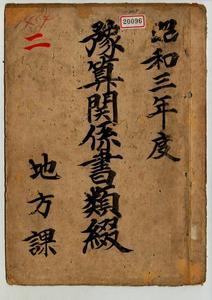 20096
昭和三年度
豫算関係書類綴
地方課
二